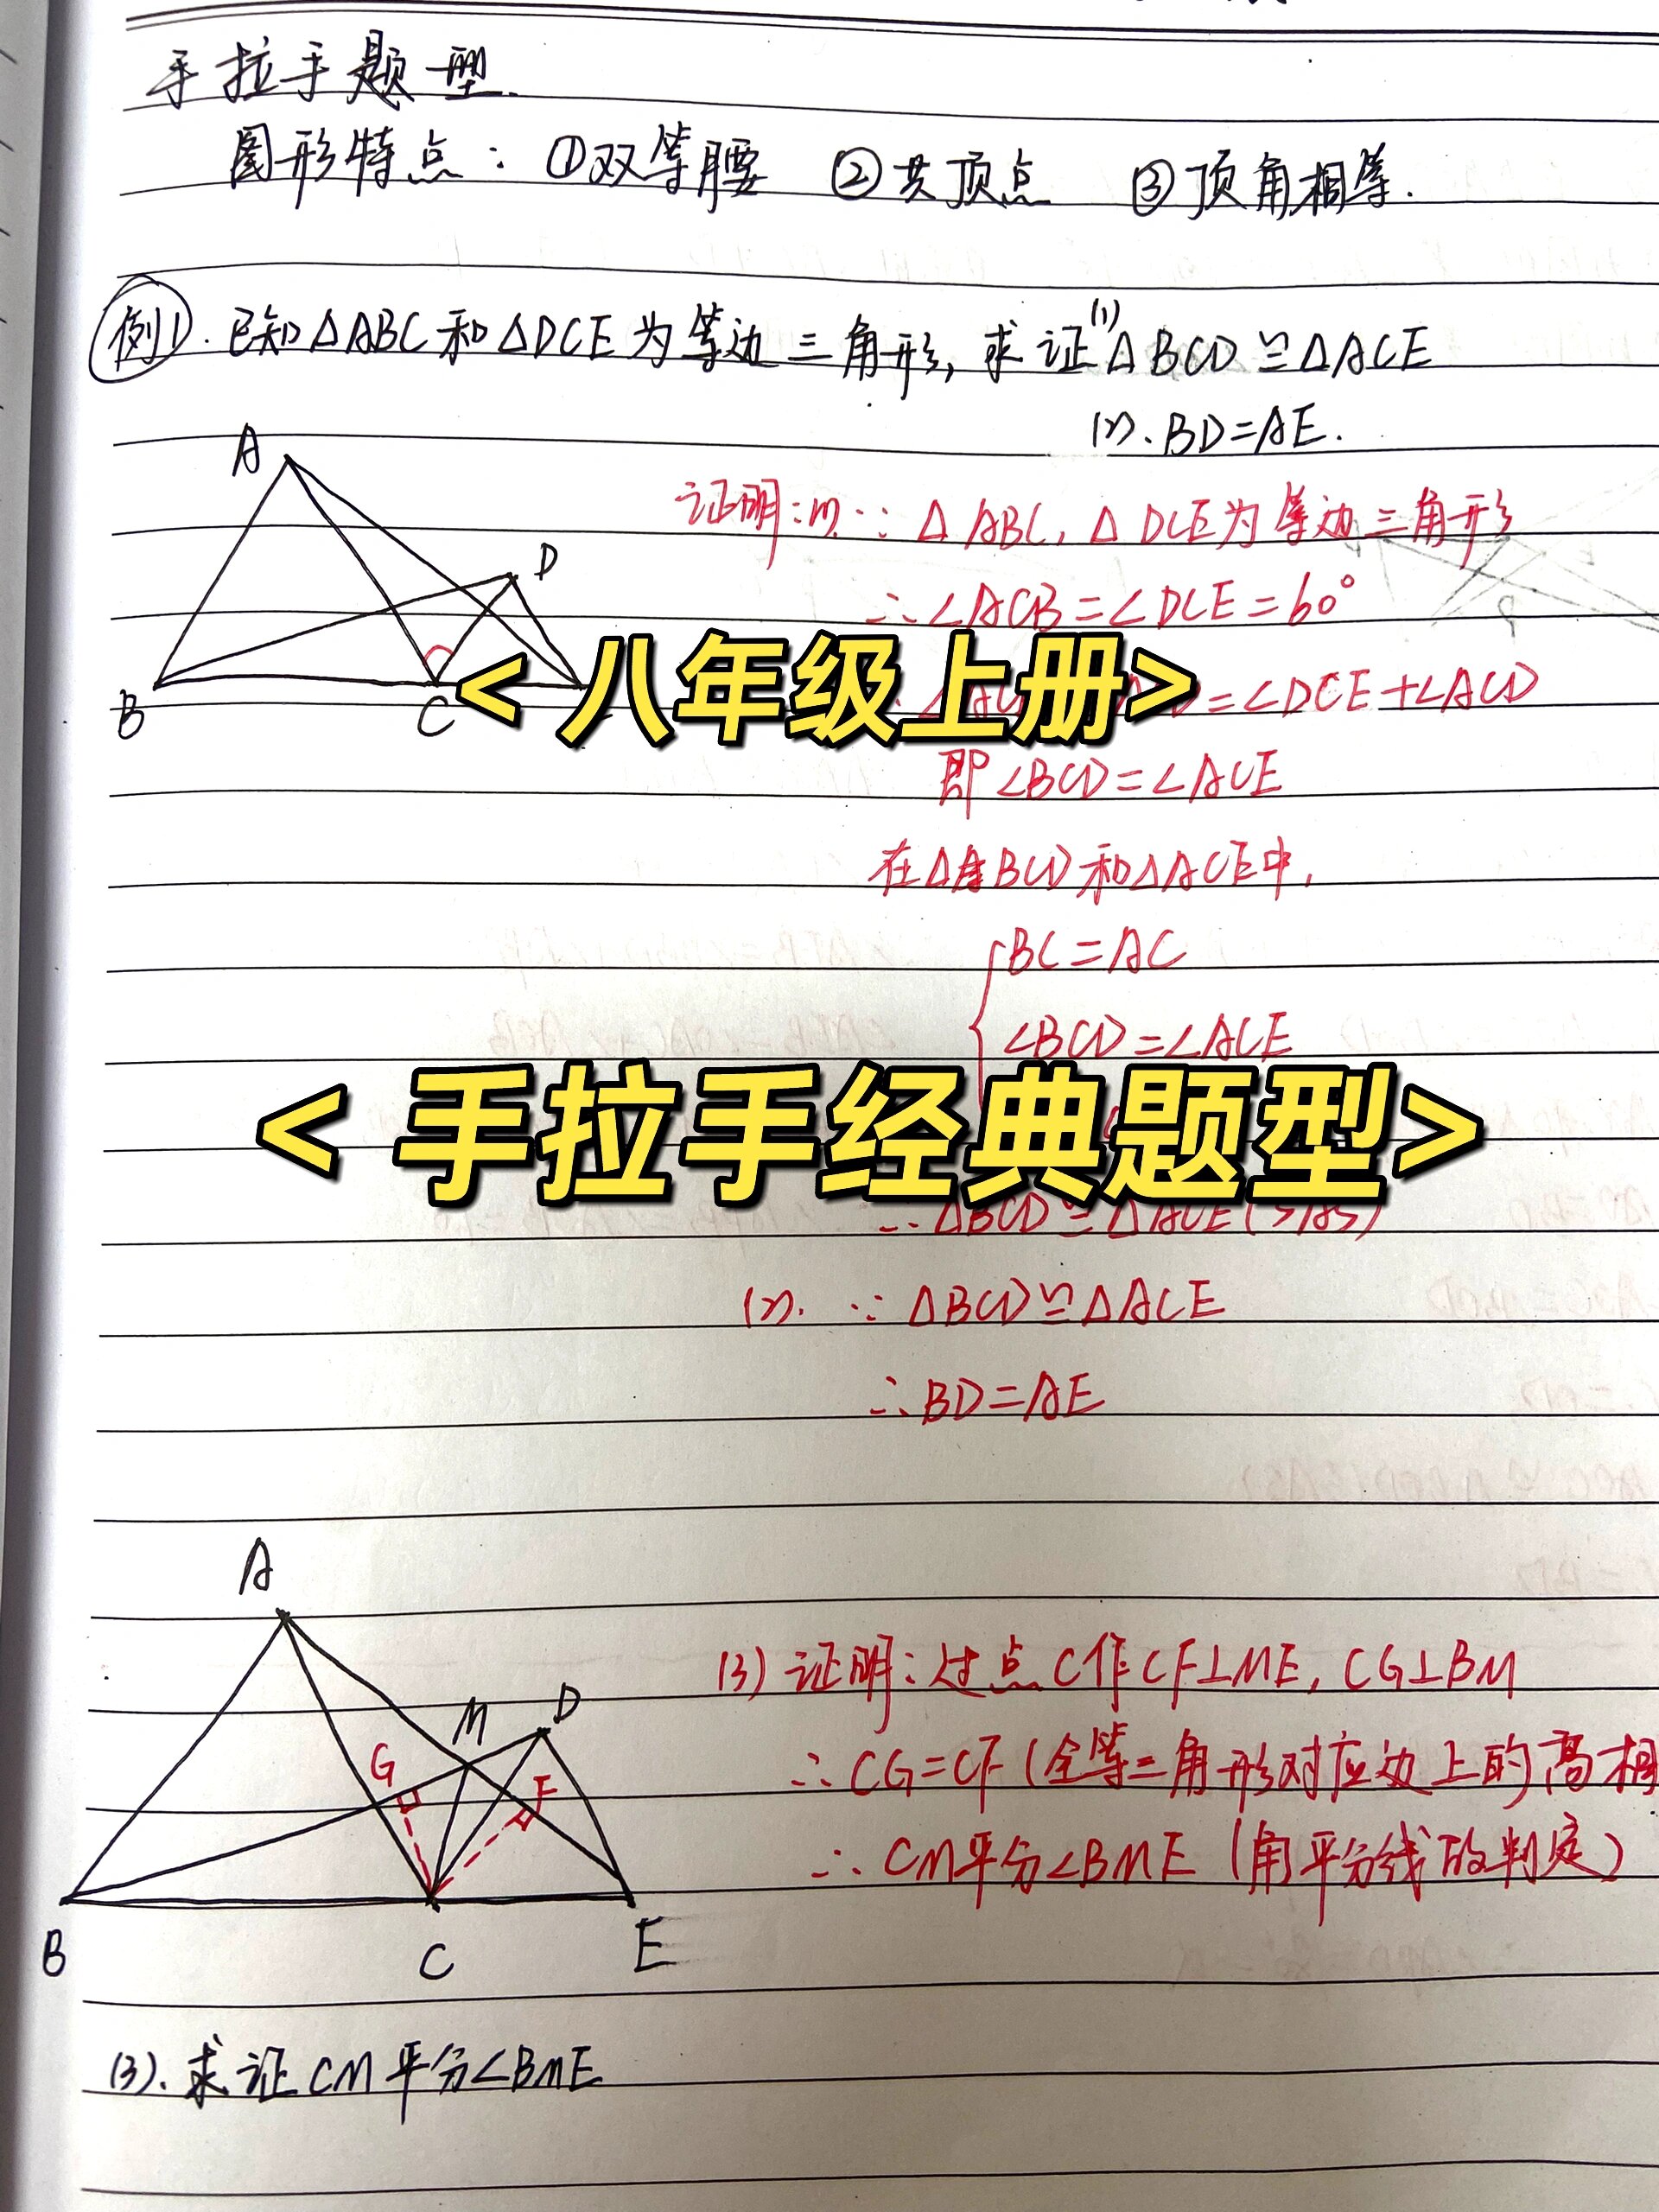 手拉手题型.
图形特点：①双等腰 ②共顶点 ③顶角相等.
例1. 已知△ABC和△DCE为等边三角形, 求证(1)△BCD≌△ACE
(2). BD=AE.
A
D
B
C
证明:(1). ∵△ABC, △DCE为等边三角形
∴∠ACB=∠DCE=60°
=∠DCE+∠ACD
<八年级上册>
即∠BCD=∠ACE
在△BCD和△ACE中,
BC=AC
∠BCD=∠ACE
<手拉手经典题型>
∴△BCD≌△ACE(SAS)
(2). ∵△BCD≌△ACE
∴BD=AE
A
M
D
G
F
B
C
E
(3) 证明:过点C作CF⊥ME, CG⊥BM
∴CG=CF(全等三角形对应边上的高相
∴CM平分∠BME (角平分线的判定)
(3). 求证CM平分∠BME